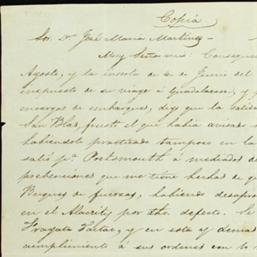 Copia
Sor. Dn. José Maria Martinez
Muy Señor mio: Consequen
Agosto, y la inserta de 2 de Junio del
impuesto de su viage á Guadalaxara, y
encargo de embarques, digo que la
San Blas, fuese el que habia
habiendole practicado tampoco en la
salió pa. Portsmouth á mediados de
prebenciones que me tiene hechas de q
Buques de fuerzas, habiendo
en el por tho. defecto. Se
Fragata Tartar, y en esta y demas
cumplimiento á sus ordenes con lo